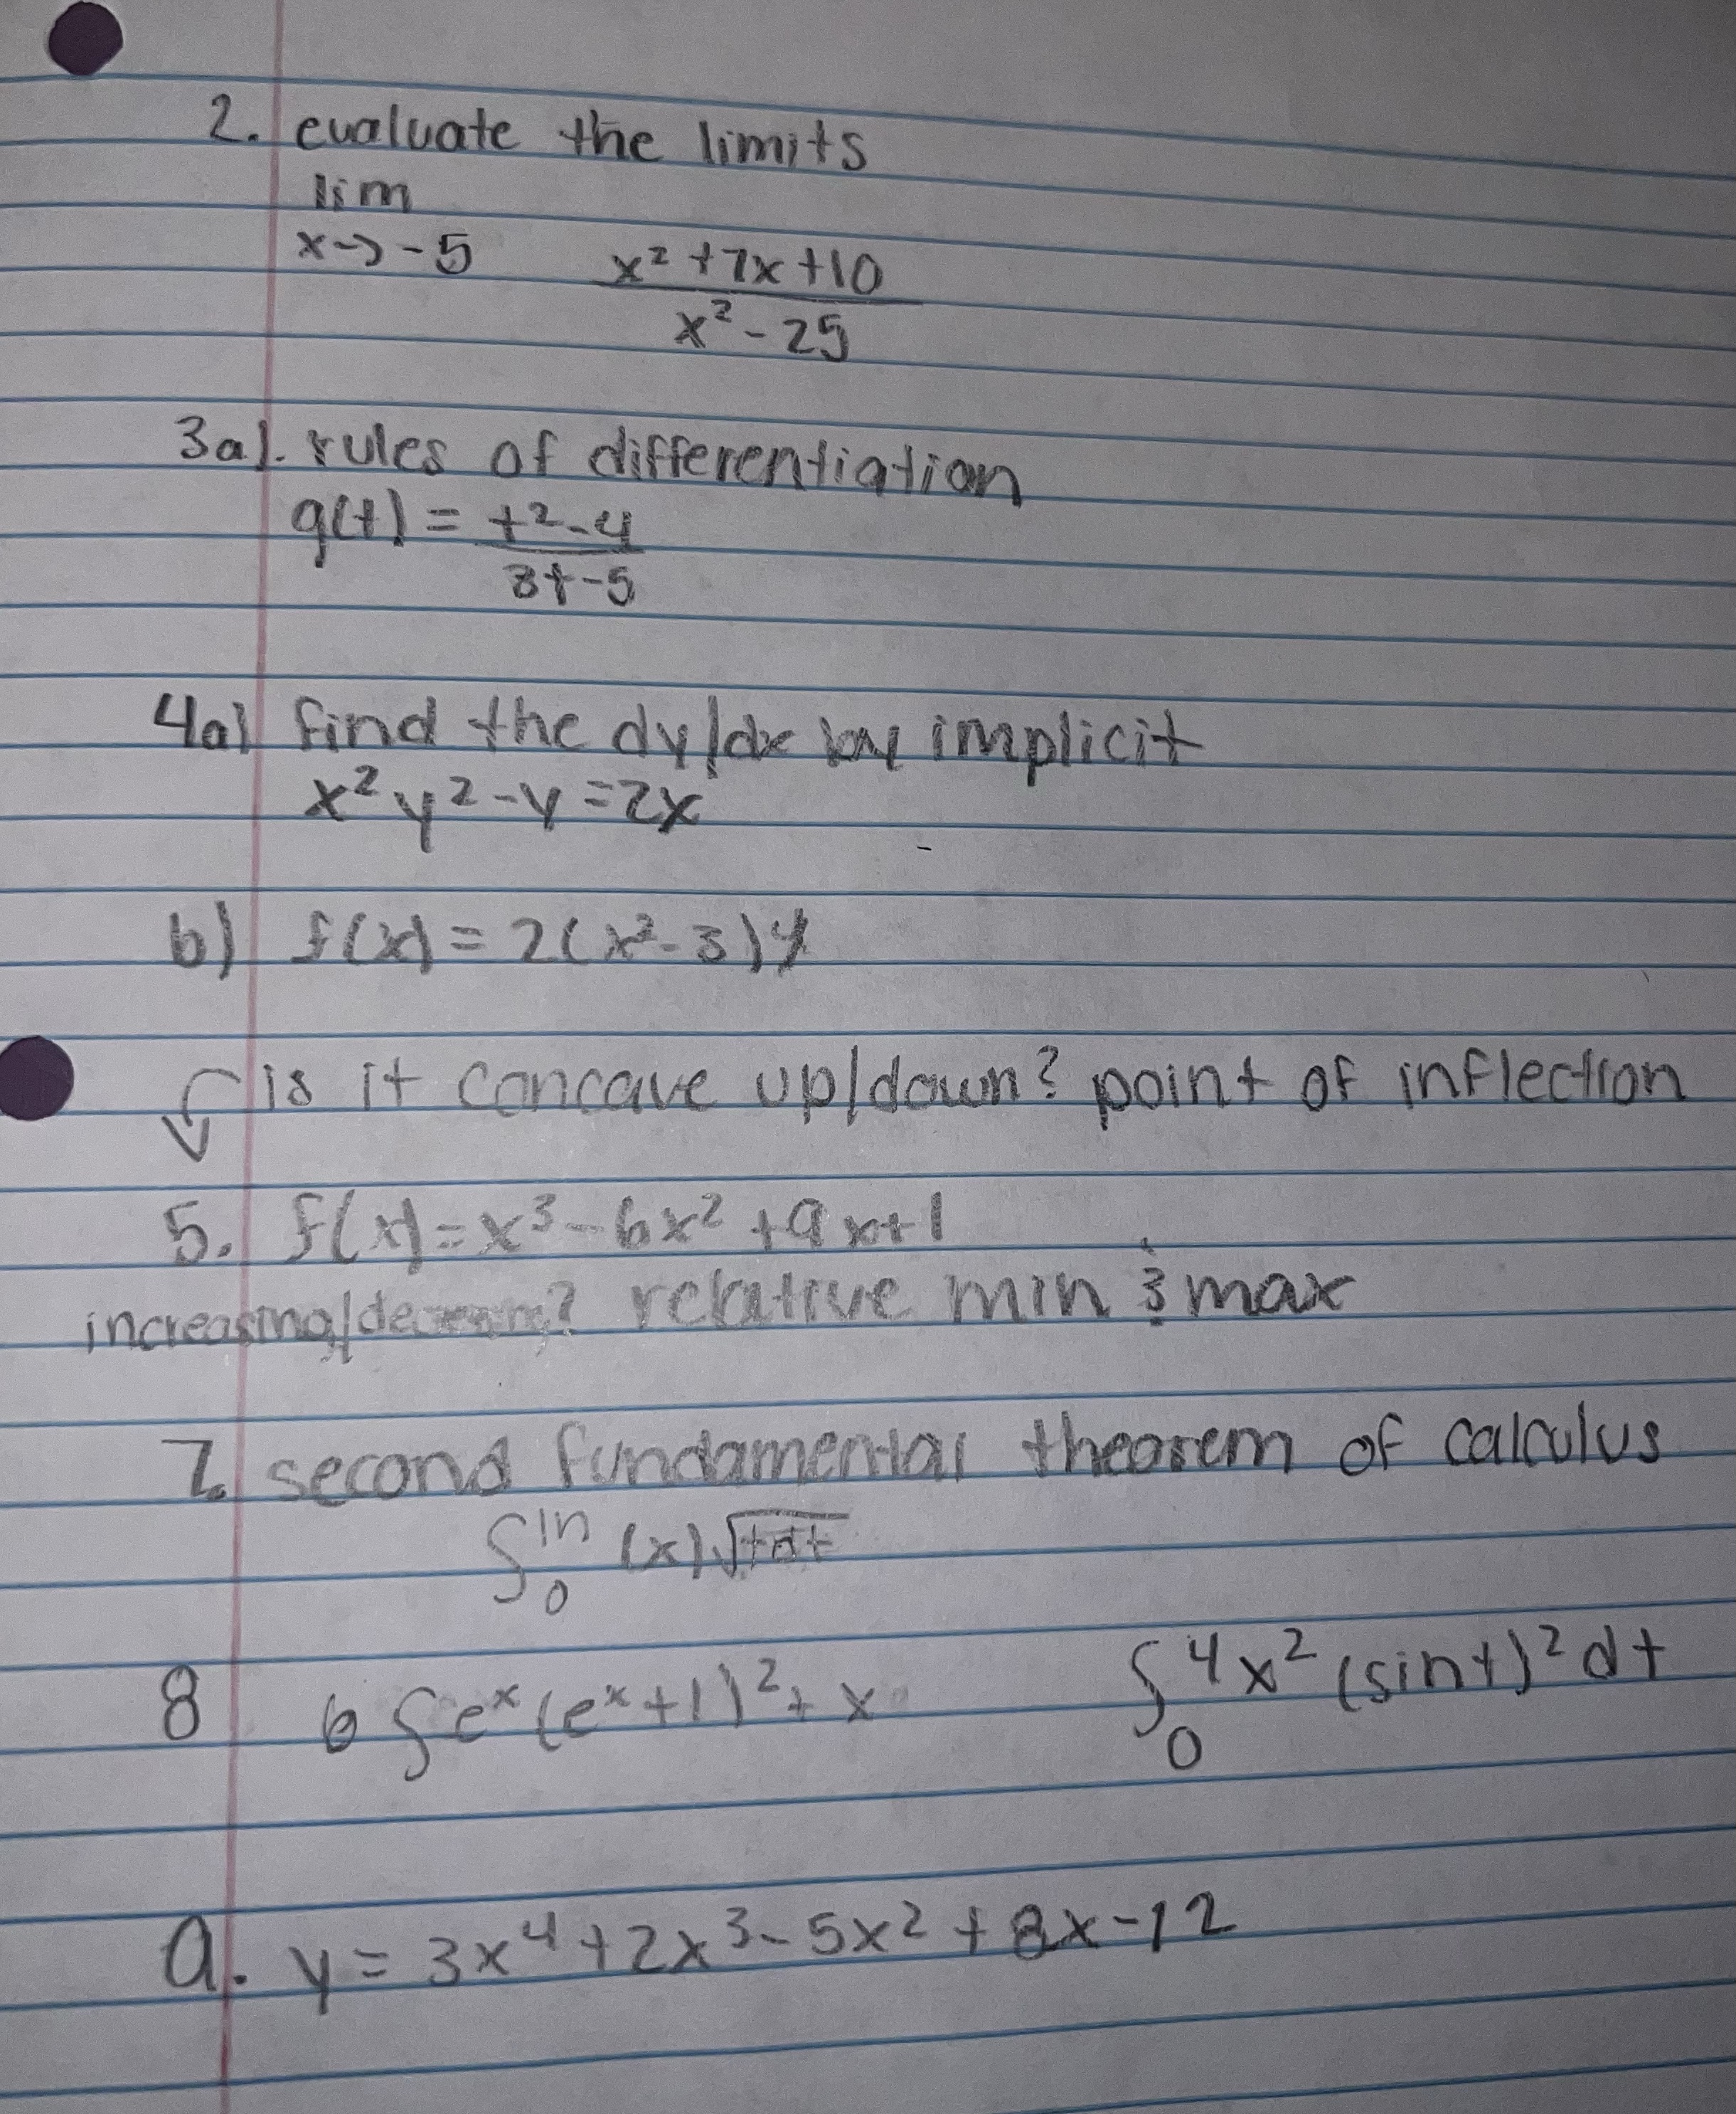 2. evaluate the limits
lim
x→ -5 x² +7x +10
x² - 25
3a). rules of differentiation
g(t) = t² - 4
3t - 5
4a) find the dy/dx by implicit
x² y² - y = 2x
b) f(x) = 2(x² - 3)4
is it concave up/down? point of inflection
5. f(x) = x³ - 6x² + 9x + 1
increasing/decreasing? relative min & max
7. second fundamental theorem of calculus
∫₀ˡⁿ (x) √tdt
8 6 ∫ eˣ (eˣ + 1)² + x ∫₀ 4x² (sint)² dt
9. y = 3x⁴ + 2x³ - 5x² + 8x - 12